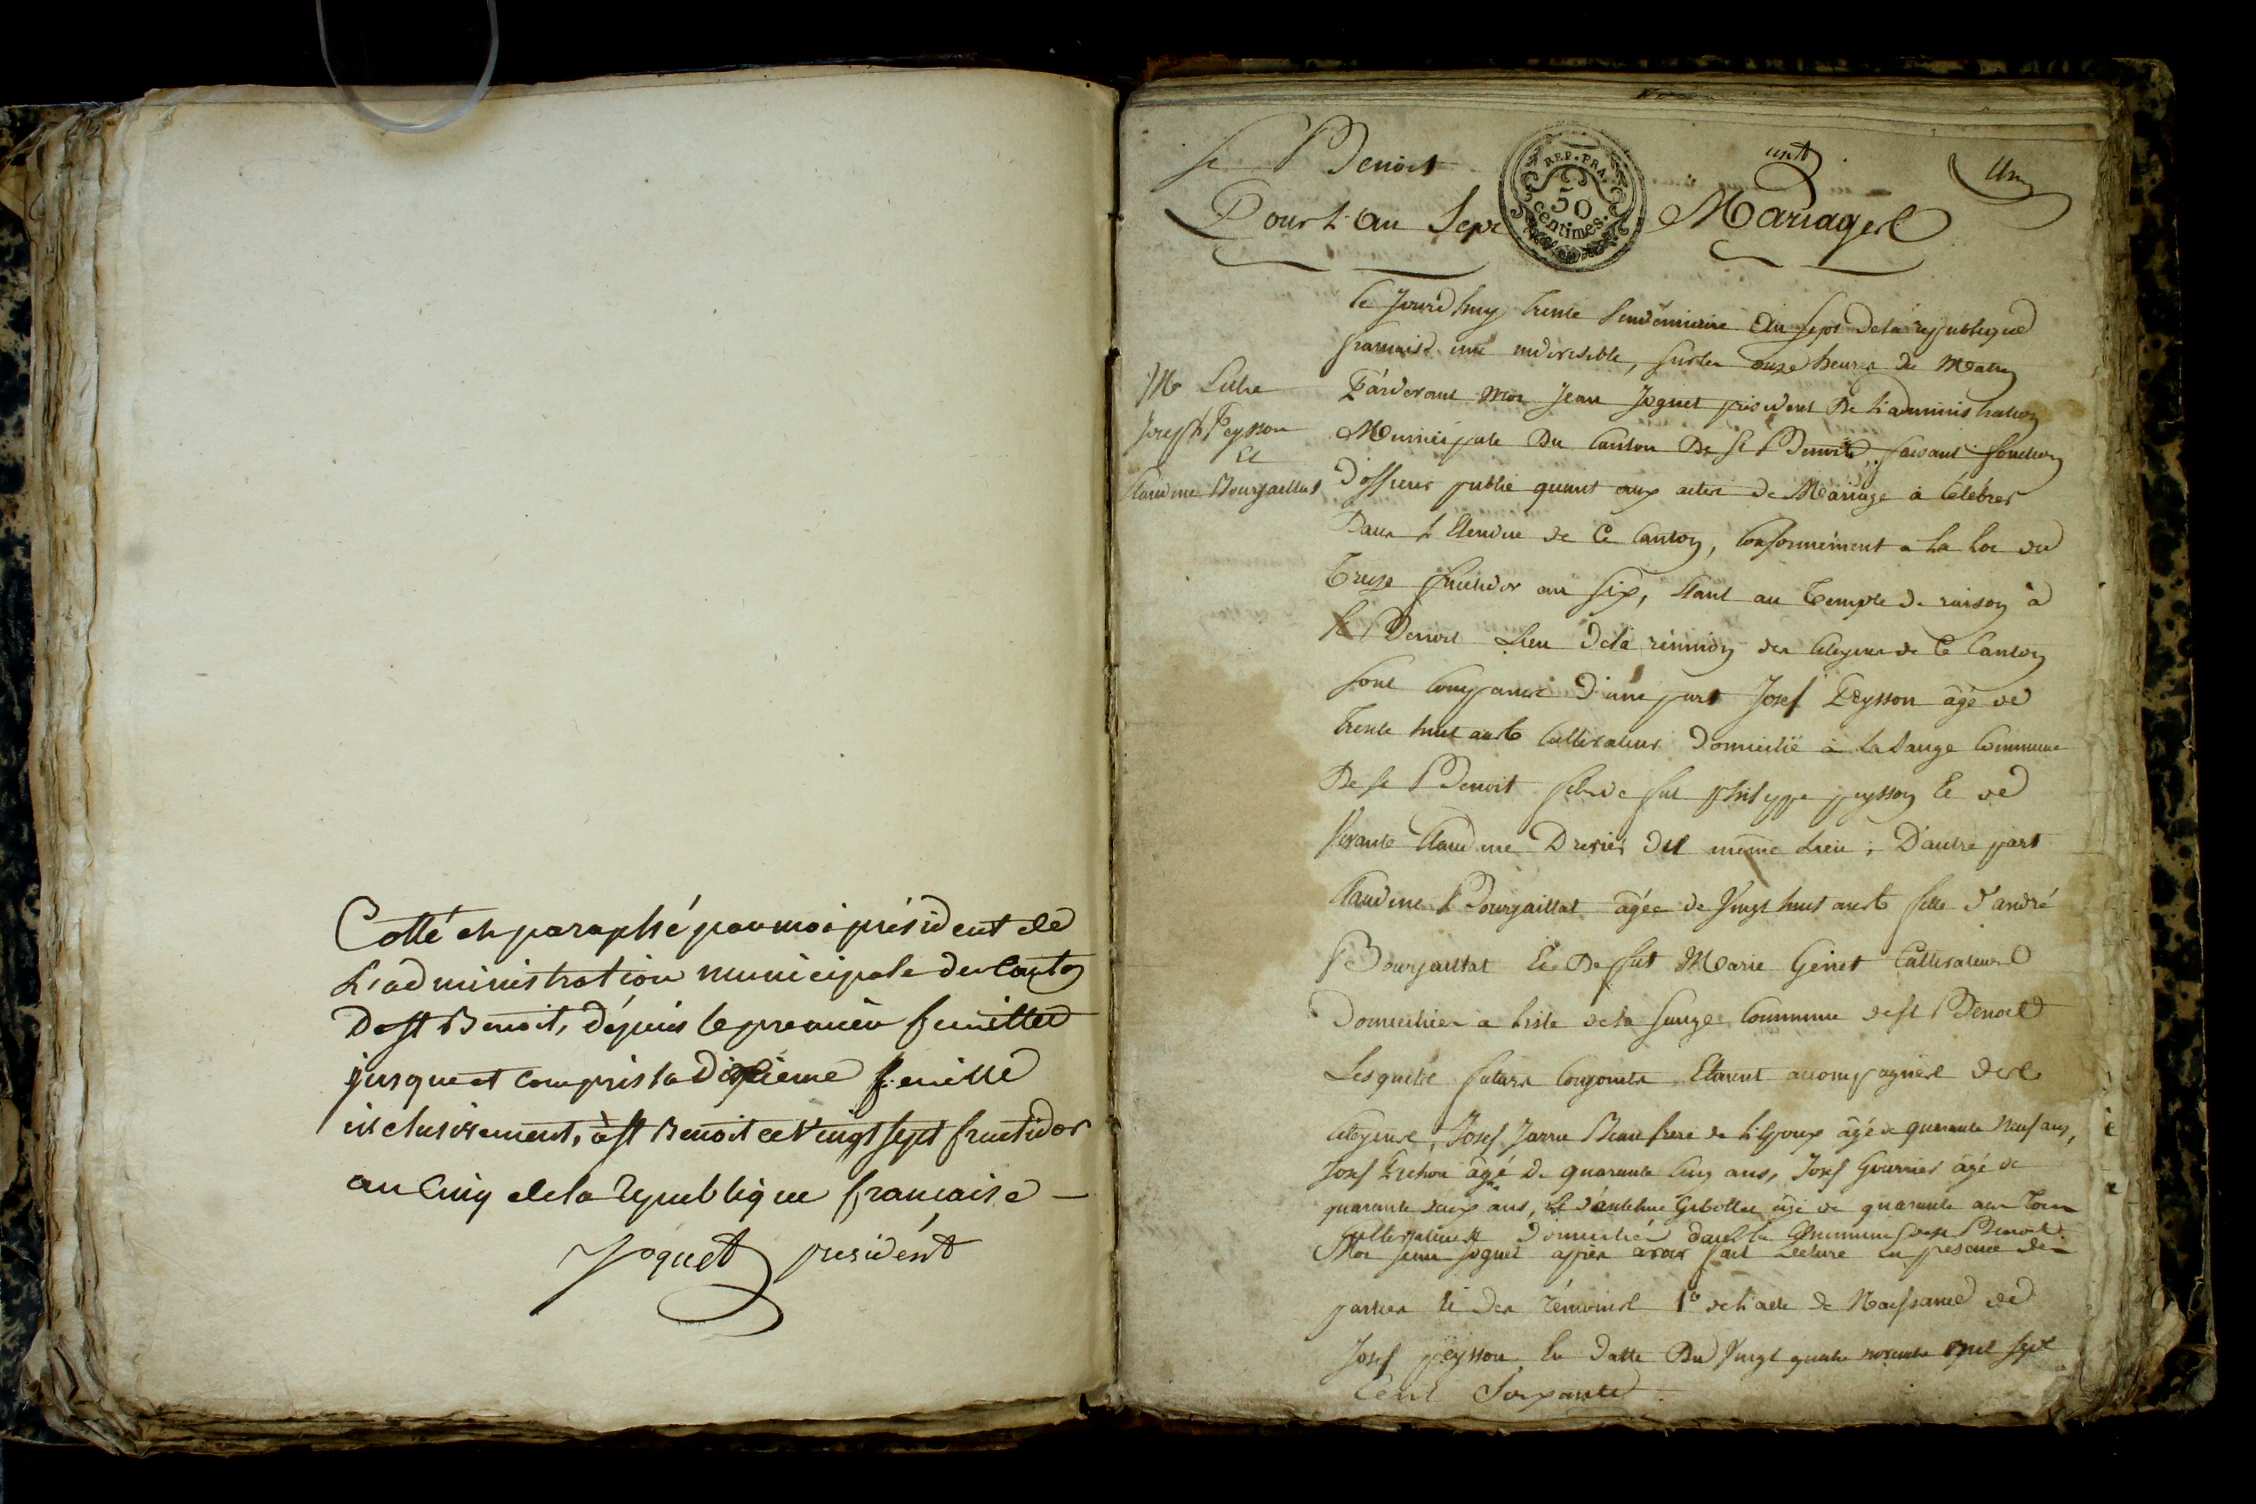 Cotté et paraphé par moi président de
L'administration municipale du Canton
De st Benoit, depuis le premier feuillet
jusque et compris la Dixieme feuille
inclusivement, à st Benoit ce Vingt sept fructidor
an Cinq de la Republique francaise –
Joquet président
St Benoit
Un
Pour L'an Sept
REP. FRA.
50
centimes.
Mariages
Ce Jourd'huy trente Vendemiaire An Sept de la republique
francaise une indivisible, sur les onze heures du Matin
Pardevant Moi Jean Joquet président De L'administration
Municipale Du Canton De St Benoit, faisant fonction
D'officier public quant aux actes de Mariage à Célébrer
Dans L'Etendue de Ce Canton, Conformément a La Loi du
Treize fructidor an Six, Etant au Temple de raison à
St Benoit Lieu De la réunion des Citoyens de Ce Canton
Mr Entre
Joseph Peysson
Et
Claudine Bourjaillat
Sont Comparus D'une part Josef Peysson âgé de
Trente huit ans Cultivateur Domicilié à La Sauge Commune
De St Benoit fils de fut Philippe peysson Et de
vivante Claudine Drevier du même Lieu ; D'autre part
Claudine Bourjaillat âgée de Vingt huit ans fille d'andré
Bourjaillat Et De fut Marie Genet Cultivateurs
Domiciliés a Liste de la Sauge Commune de St Benoit
Lesquels futurs Conjoints Etaient accompagnés des
Citoyens, Josef Beau frere de âgé de quarante Neuf ans,
Josef âgé De quarante Cinq ans, Josef Gournier âgé de
quarante deux ans, Et d'anthelme âgé de quarante ans Tous
Cultivateurs Domiciliés dans la Commune de St Benoit.
Moi Jean Joquet après avoir fait Lecture En présence des
parties Et des Témoins 1° de L'acte de Naissance de
Josef peysson En Datte Du Vingt quatre novembre Mil Sept
Cent Soixante